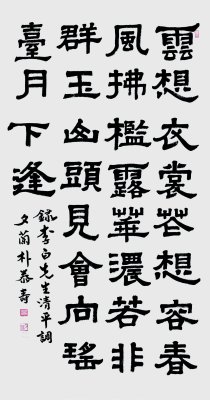 雲想衣裳花想容春
風拂檻露華濃若非
群玉山頭見會向瑤
臺月下逢
錄李白先生清平調
夕蘭朴恭壽